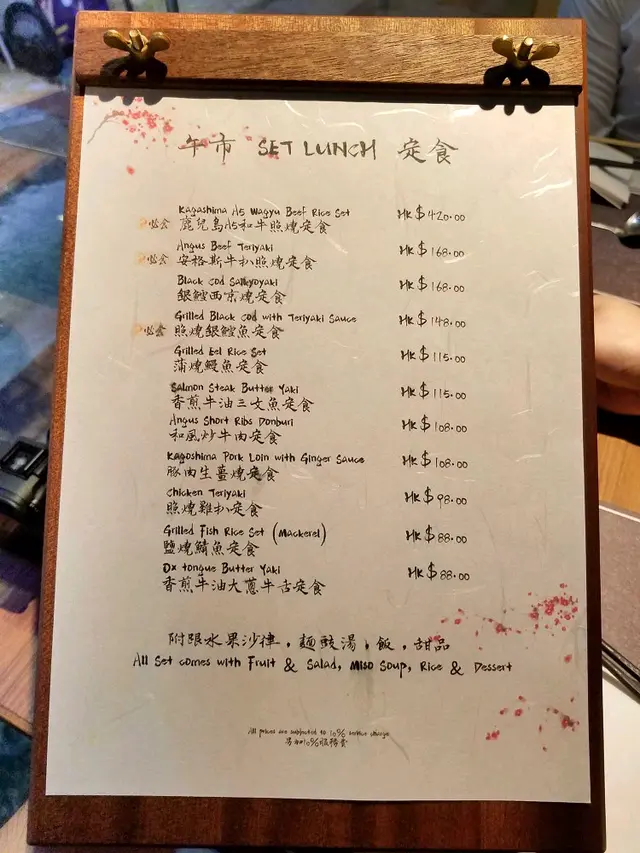 午市 SET LUNCH 定食
Kagashima A5 Wagyu Beef Rice Set HK$420.00
必食 鹿兒島A5和牛照燒定食
Angus Beef Teriyaki HK$168.00
必食 安格斯牛扒照燒定食
Black Cod Saikyoyaki HK$168.00
銀鱈西京燒定食
Grilled Black Cod with Teriyaki Sauce HK$148.00
必食 照燒銀鱈魚定食
Grilled Eel Rice Set HK$115.00
蒲燒鰻魚定食
Salmon Steak Butter Yaki HK$115.00
香煎牛油三文魚定食
Angus Short Ribs Donburi HK$108.00
和風炒牛肉定食
Kagoshima Pork Loin with Ginger Sauce HK$108.00
豚肉生薑燒定食
Chicken Teriyaki HK$98.00
照燒雞扒定食
Grilled Fish Rice Set (Mackerel) HK$88.00
鹽燒鯖魚定食
Ox tongue Butter Yaki HK$88.00
香煎牛油大蔥牛舌定食
附跟水果沙律，麵豉湯，飯，甜品
All Set comes with Fruit & Salad, Miso Soup, Rice & Dessert
All prices are subjected to 10% service charge
另加10%服務費